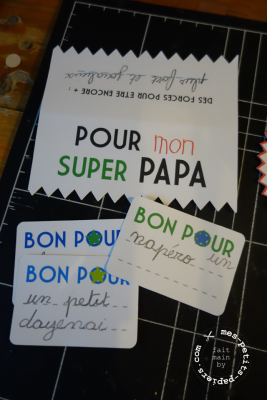 plus fort et
DES FORCES POUR ETRE ENCORE +
POUR mon
SUPER PAPA
BON POUR
BON POUR
un petit
BON POUR
un
xapéro
mes-petits-papiers.com
fait
main
by